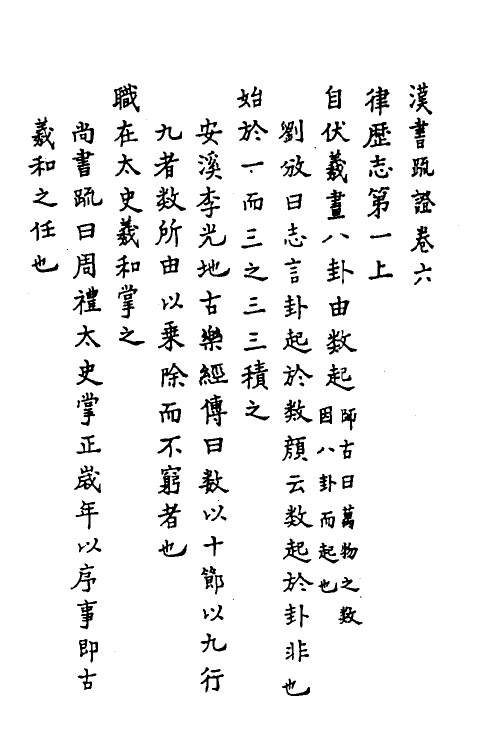 漢書疏證卷六
律歷志第一上
自伏羲畫八卦由数起師古曰萬物之数因八卦而起也
劉攽曰志言卦起於数顔云数起於卦非也
始於一而三之三三積之
安溪李光地古樂經傳曰数以十節以九行
九者数所由以乗除而不窮者也
職在太史羲和掌之
尚書疏曰周禮太史掌正歲年以序事即古
羲和之任也